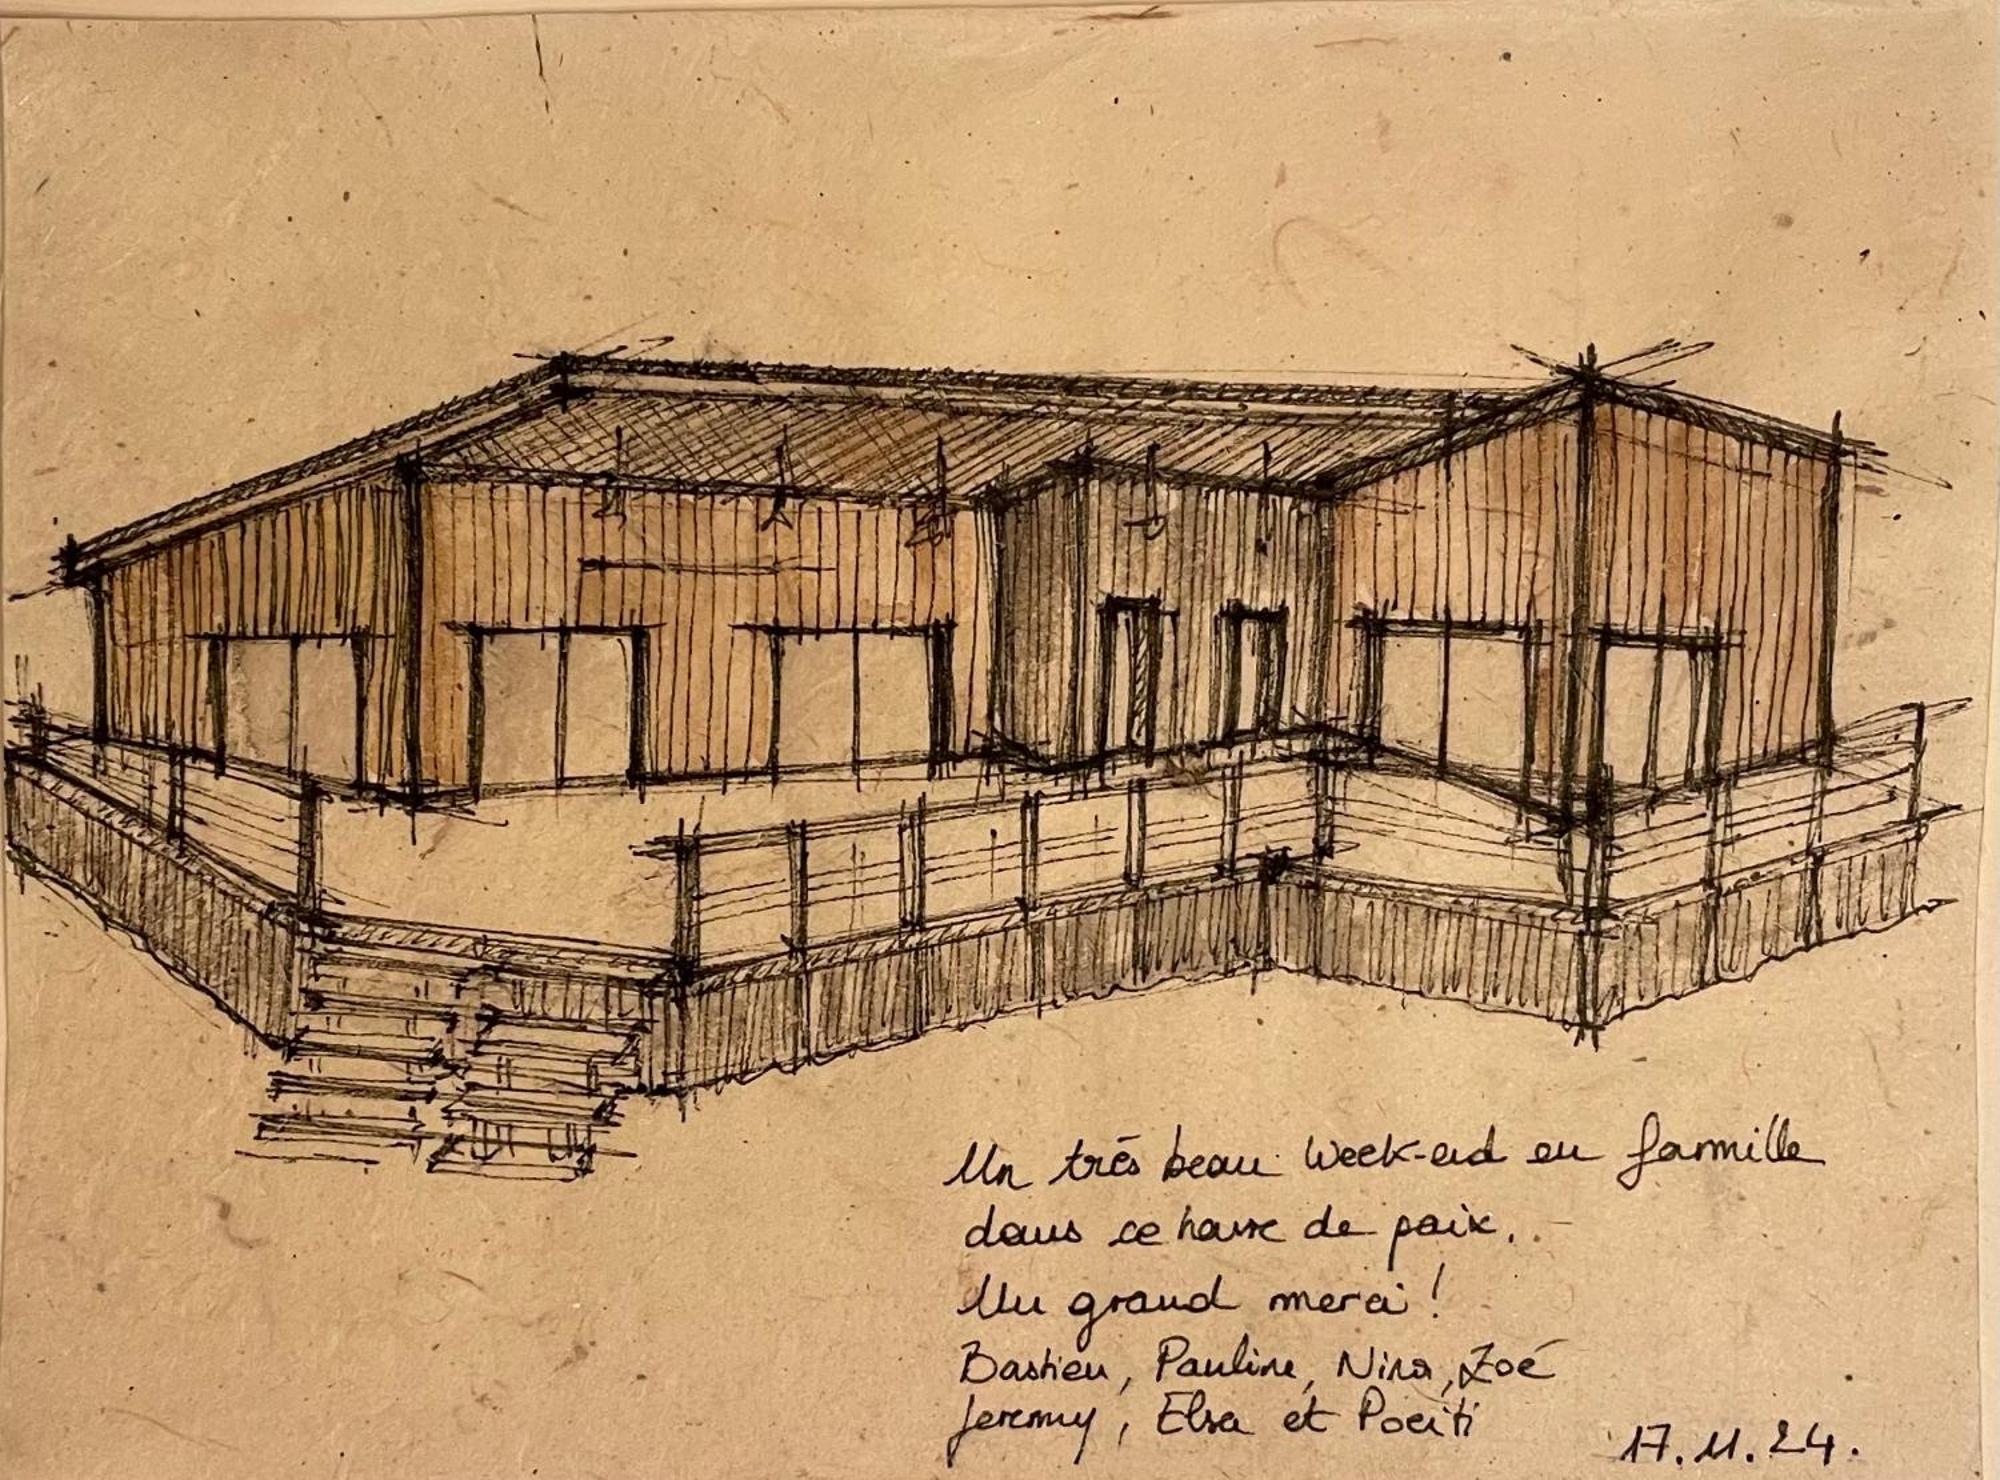 Un très beau week-end en famille
dans ce havre de paix.
Un grand merci !
Bastien, Pauline, Nina, Zoé
Jeremy, Elsa et Poeiti
17.11.24.